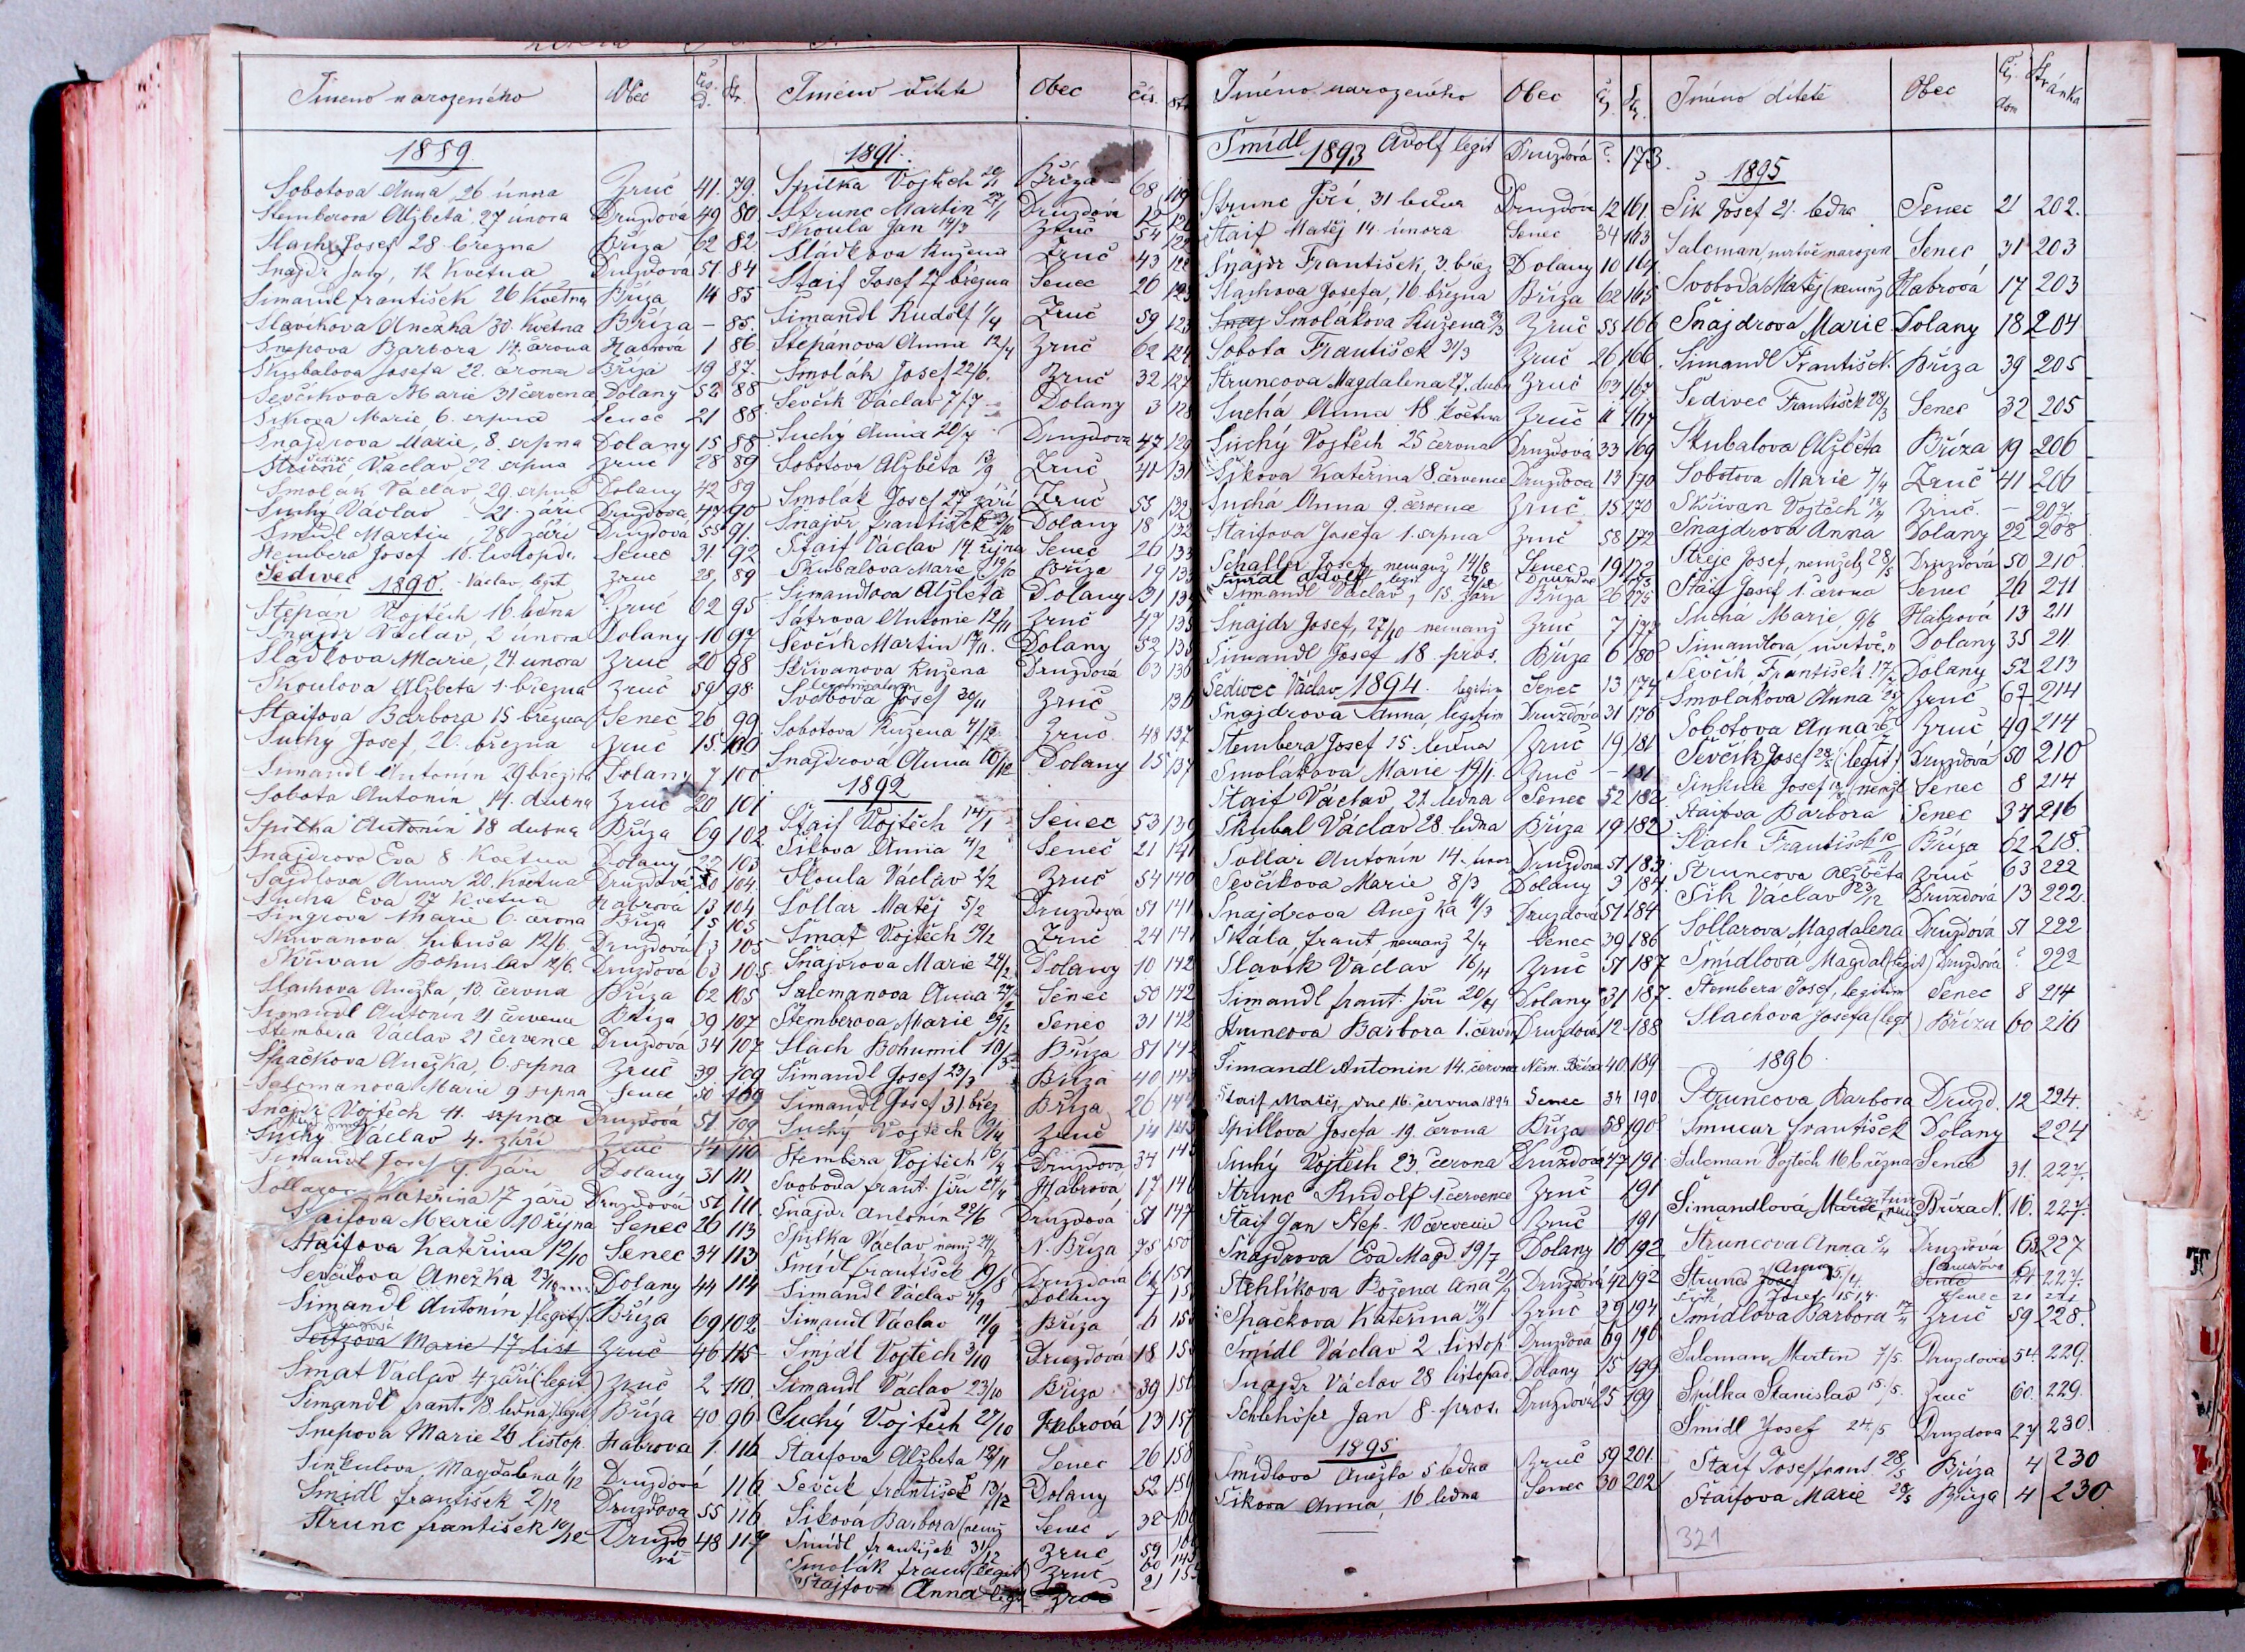 Jméno narozeného Obec Čís. d. Str.
1889.
Sobotova Anna 26 února Zruč 41. 79.
Štemberova Alžběta 27 února Druzdová 49 80
Šlach Josef 28 března Bříza 62 82
Šnajdr Juraj, 12 Května Druzdova 51. 84
Šimandl František 26 Května Bříza 14 85
Slavíkova Anežka 30. Května Bříza - 85.
Snepova Barbora 14. června Habrová 1 86.
Skubalova Josefa 22. června Bříza 19 87.
Ševčíkova Marie 31 července Dolany 52 88
Šikova Marie 6. srpna Senec 21 88.
Šnajdrova Marie, 8. srpna Dolany 15 88
Šedivec
Strunc Václav 22 srpna Zruč 28 89
Smolák Václav 29. srpna Dolany 42 89
Suchý Václav - 21. září Druzdova 47 90
Šmidl Martin, 28 září Druzdová 55 91.
Štembera Josef 10. listopadu Senec 31. 92
Šedivec Václav, legit Zruč 28, 89
1890.
Štěpan Vojtěch 16. ledna Zruč 62 95
Šnajdr Václav, 2 února Dolany 10 97
Sladkova Marie, 24. unora Zruč 20 98
Skoulova Alžběta 1. března Zruč 59 98.
Štaifova Barbora 15 března Senec 26 99
Suchy Josef, 20. března Zruč 15. 100
Šimandl Antonín 29 března Dolany 7 100
Sobota Antonín 14. dubna Zruč 20 101
Spilka Antonín 18 dubna Bříza 69 102
Šnajdrova Eva 8 Května Dolany 22 103
Šajdlova Anna 20. Května Druzdová 50 104.
Sucha Eva 27 Května Habrova 13 104
Singrova Marie 6. června Bříza 15 105
Skřivanova Libuša 12/6. Druzdová 63 105
Skřivan Bohuslav 12/6. Druzdová 63 105.
Šlachova Anežka, 13. června Bříza 62 105
Šimandl Antonin 21 července Bříza 39 107
Štembera Václav 21 července Druzdová 34 107
Spačkova Anežka, 6. srpna Zruč 39. 109
Salcmanova Marie 9 srpna Senec 50 109
Šnajdr Vojtěch 11. srpna Druzdová 51 109
Suchy Václav 4. září Zruč 14 110
Šimandl Josef 9. září Dolany 31 111
Sollarova Kateřina 17 září Druzdová 51 111.
Štaifova Marie 10 října Senec 26 113
Štaifova Kateřina 12/10 Senec 34 113
Ševčíkova Anežka 23/10 Dolany 44 114
Šimandl Antonín (legit) Bříza 69 102
Seitzova Marie 17 list Zruč 46 115
Šmat Václav 4 září (legit) Zruč 2 110.
Šimandl frant. 18 ledna (legit) Bříza 40 96
Snepova Marie 20 listop. Habrova 1. 116
Sinkulova Magdalena 1/12 Druzdová 116
Šmidl františek 2/12 Druzdova 55 116
Strunc františek 10/12 Druzdová 48 117
Jméno dítěte Obec Čís. str.
1891.
Spilka Vojtěch 20/1 Bříza 68 119
Strunc Martin 27/1 Druzdová 12
Skoula Jan 14/3 Zruč 54
Sládkova Ružena Zruč 43
Štaif Josef 27 března Senec 26
Šimandl Rudolf 1/4 Zruč 59 123
Štepánova Anna 12/4 Zruč 62 124
Smolák Josef 22/6. Zruč 32 127
Ševčík Václav 7/7 Dolany 3 128
Suchý Anna 20/7 Druzdova 47 129
Sobotova Alžběta 13/9 Zruč 41 131
Smolák Josef 27 září Zruč 55 132
Šnajdr františek Dolany 18 132
Štaif Václav 14. října Senec 26 133
Skubalova Marie 19/10 Bříza 19 133
Šimandlova Alžběta Dolany 31
Šatrova Antonie 12/11 Zruč 47 135
Ševčík Martin 17/11. Dolany 52 135
Skřivanova Ružena Druzdová 63 136
legitimován
Svoboda Josef 30/11 Zruč 136
Sobotova Ružena 4/12 Zruč 48 137
Šnajdrová Anna 10/12 Dolany 15 137
1892
Štaif Vojtěch 14/1 Senec 53 139
Šikova Anna 4/2 Senec 21 141
Skoula Václav 2/2 Zruč 54 140
Sollar Matěj 5/2 Druzdová 51 141
Šmat Vojtěch 19/2 Zruč 24 141
Šnajdrova Marie 24/2 Dolany 10 142
Salcmanova Anna 27/2 Senec 50 142
Štemberova Marie 29/2 Senec 31 142
Šlach Bohumil 10/3 Bříza 81 142
Šimandl Josef 23/3 Bříza 40 143
Šimandl Josef 31. břez Bříza 26 144
Suchý Vojtěch 9/4 Zruč 14 145
Štembera Vojtěch 16/4 Druzdova 34 145
Svoboda frant. Jiří 27/4 Habrova 17 146
Šnajdr Antonín 22/6 Druzdová 51 147
Spilka Václav nemž N. Bříza 75 150
Šmidl františek 19/8 Druzdová 151
Šimandl Václav 4/9 Dolany 7
Šimandl Václav 11/9 Bříza 6
Šmidl Vojtěch 3/10 Druzdová 18
Šimandl Václav 23/10 Bříza 39 156
Suchý Vojtěch 27/10 Habrová 13 157
Štaifova Alžběta Senec 26 158
Ševčík františek 13/12 Dolany 52 159
Šiková Barbora (nemž Senec 32
Šmidl františek 31/12 Zruč 59
Smolák frant (legit) Zruč
Štajfova Anna legit Zruč 21
Jméno narozeného Obec Čís. Str.
Šmidl Adolf legit Druzdová ?. 173.
1893
Strunc Jiří, 31 ledna Druzdová 12 161.
Štaif Matěj 14. února Senec 34 163
Šnajdr František, 3. břez Dolany 10 164
Šlachova Josefa, 16. března Bříza 62 165
Smolákova Ružena Zruč 55 166
Sobota František 31/3 Zruč 26 166.
Struncova Magdalena 27. dub Zruč 63. 167
Suchá Anna 18 května Zruč 11 167
Suchý Vojtěch 25 června Druzdová 33 169
Šikova Kateřina 8. července Druzdova 13 170
Suchá Anna 9. července Zruč 15 170
Štaifova Josefa 1. srpna Zruč 58 172
Schaller Josef, nemanž 14/8 Senec 19 172
Šmidl Adolf legit
Šimandl Václav, 15. září Bříza 26 175
Šnajdr Josef, 27/10 nemanž Zruč 7 177
Šimandl Josef 18. pros. Bříza 6 180
Šedivec Václav legitim Senec 13 174
1894.
Šnajdrová Anna, legitim Druzdová 31 176
Štembera Josef 15. ledna Zruč 19 181
Smolákova Marie 19/1 Zruč - 181
Štaif Václav 21. ledna Senec 52 182.
Skubal Václav 28. ledna Bříza 19 182
Sollar Antonín 14. únor Druzdova 51 183.
Ševčíkova Marie 8/3 Dolany 3 184.
Šnajdrova Anežka 11/3 Druzdová 51 184
Skála, frant nemanž 2/4 Senec 39 186
Slavík Václav 16/4 Zruč 51 187
Šimandl frant. Jiří 20/4 Dolany 31 187.
Struncova Barbora 1. června Druzdová 12 188
Šimandl Antonin 14. června Něm. Bříza 40 189
Štaif Matěj dne 16. června 1894 Senec 34 190
Spillova Josefa 19. června Bříza 58 190
Suchý Vojtěch 23. června Druzdova 47 191
Strunc Rudolf 1. července Zruč 191
Štaif Jan Step. 10 července Zruč 191
Šnajdrová Eva Magd 19/7 Dolany 10 192
Stehlíkova Božena Ana Druzdová 42 192
Spačkova Kateřina Zruč 39 194
Šmidl Václav 2 listop. Druzdová 69 196
Šnajdr Václav 28 listopad Dolany 15 199
Schlehöfer Jan 8. pros. Druzdová 25 199
1895
Šmidlova Anežka 5 ledna Zruč 59 201.
Šikova Anna, 16 ledna Senec 30 202
Jméno dítěte Obec Čís. dom Stránka
1895
Šik Josef 21. ledna Senec 21 202.
Salcman, mrtvě narozen Senec 31 203
Svoboda Matěj (nemanž) Habrová 17 203
Šnajdrova Marie Dolany 18 204
Šimandl František. Bříza 39 205
Šedivec František 28/3 Senec 32 205
Skubalova Alžběta Bříza 19 206
Sobotova Marie 4/4 Zruč 41 206
Skřivan Vojtěch Zruč. - 207.
Šnajdrova Anna Dolany 22 208
Strejc Josef, nemžels 28/5 Druzdová 50 210
Štaif Josef 1. června Senec 26 211
Suchá Marie, 9/6 Habrová 13 211
Šimandlova, mrtvě n Dolany 35 211
Ševčík František Dolany 52 213
Smolakova Anna Zruč 67 214
Sobotova Anna Zruč 49 214
Ševčík Josef (legit) Druzdová 50 210
Sinkule Josef (nemžl Senec 8 214
Štaifova Barbora Senec 34 216
Šlach František Bříza 62 218.
Struncova Alžběta Zruč 63 222
Šik Václav 23/12 Druzdová 13 222.
Sollarova Magdalena Druzdová 51 222
Šmídlová Magdal (legit) Druzdová ? 222
Štembera Josef, legitim Senec 8 214
Šlachova Josefa (legt) Bříza 60 216
1896.
Struncova Barbora Druzd. 12 224.
Smucar František Dolany 224
Salcman Vojtěch 16 března Senec 31. 227.
Šimandlová Marie Bříza N. 16. 227.
Struncova Anna Druzdová 63 227
Strunc Josef Anna 5/4 Senec 227.
Šik Josef 15/4. Senec 21
Šmídlova Barbora Zruč 59 228.
Salcman Martin 7/5. Druzdová 54. 229.
Spilka Stanislav 15./5. Zruč 60. 229.
Šmidl Josef 24./5 Druzdova 27 230
Štaif Josef frant. 28/5 Bříza 4 230
Štaifova Marie 28/5 Bříza 4 230.
321